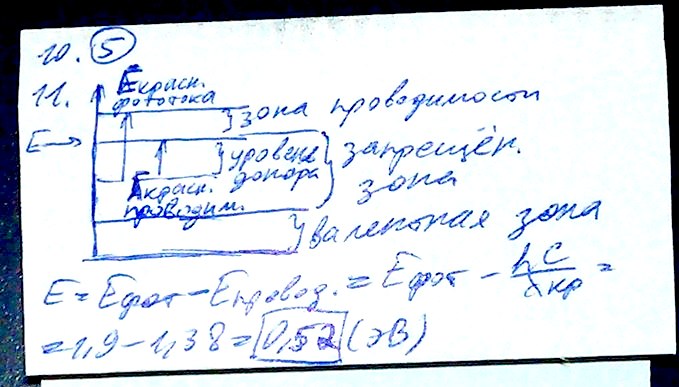 10. 5
11. Eкрасн.
фототока
зона проводимости
E→
уровень
донора
запрещён.
зона
Eкрасн.
проводим.
валентная зона
E = Eфот − Eпровод. = Eфот − hc/λкр =
= 1,9 − 1,38 = 0,52 (эВ)